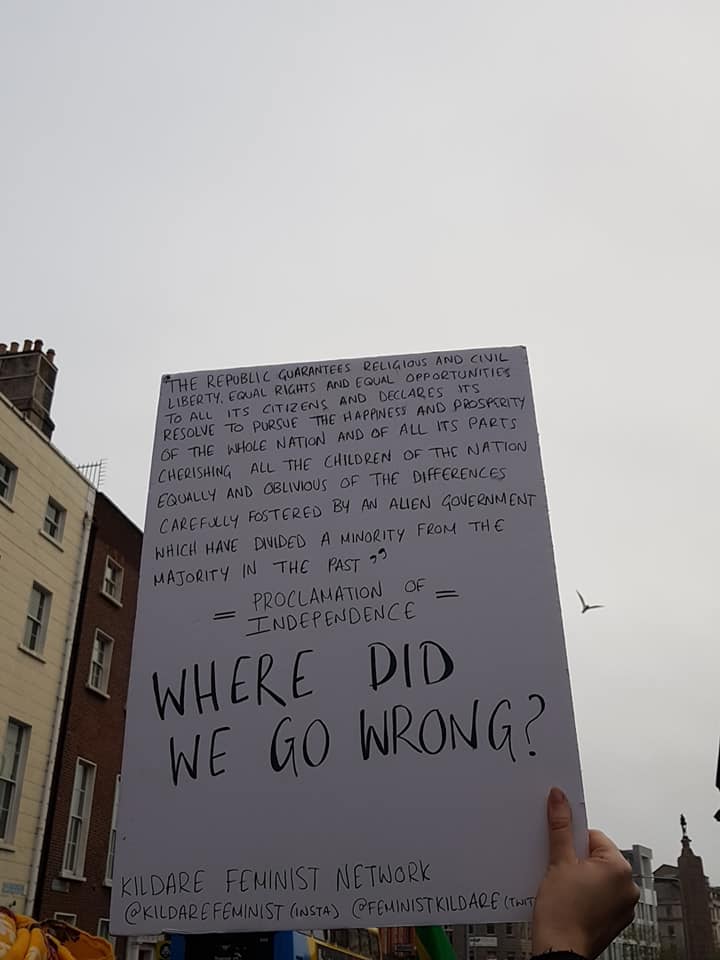 "THE REPUBLIC GUARANTEES RELIGIOUS AND CIVIL
LIBERTY, EQUAL RIGHTS AND EQUAL OPPORTUNITIES
TO ALL ITS CITIZENS AND DECLARES ITS
RESOLVE TO PURSUE THE HAPPINESS AND PROSPERITY
OF THE WHOLE NATION AND OF ALL ITS PARTS
CHERISHING ALL THE CHILDREN OF THE NATION
EQUALLY AND OBLIVIOUS OF THE DIFFERENCES
CAREFULLY FOSTERED BY AN ALIEN GOVERNMENT
WHICH HAVE DIVIDED A MINORITY FROM THE
MAJORITY IN THE PAST"
= PROCLAMATION OF =
INDEPENDENCE
WHERE DID
WE GO WRONG?
KILDARE FEMINIST NETWORK
@KILDAREFEMINIST (INSTA) @FEMINISTKILDARE (TWIT